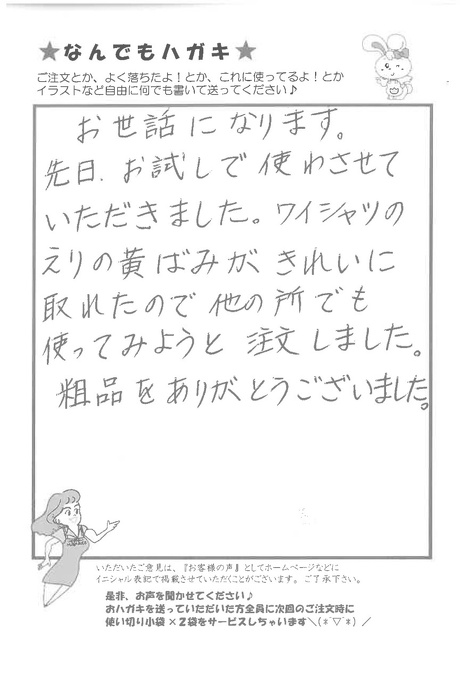 ★なんでもハガキ★
ご注文とか、よく落ちたよ！とか、これに使ってるよ！とか
イラストなど自由に何でも書いて送ってください♪
お世話になります。
先日、お試しで使わさせて
いただきました。ワイシャツの
えりの黄ばみがきれいに
取れたので他の所でも
使ってみようと注文しました。
粗品をありがとうございました。
いただいたご意見は、『お客様の声』としてホームページなどに
イニシャル表記で掲載させていただくことがございます。ご了承下さい。
是非、お声を聞かせてください♪
おハガキを送っていただいた方全員に次回のご注文時に
使い切り小袋×2袋をサービスしちゃいます＼(*´▽`*)／